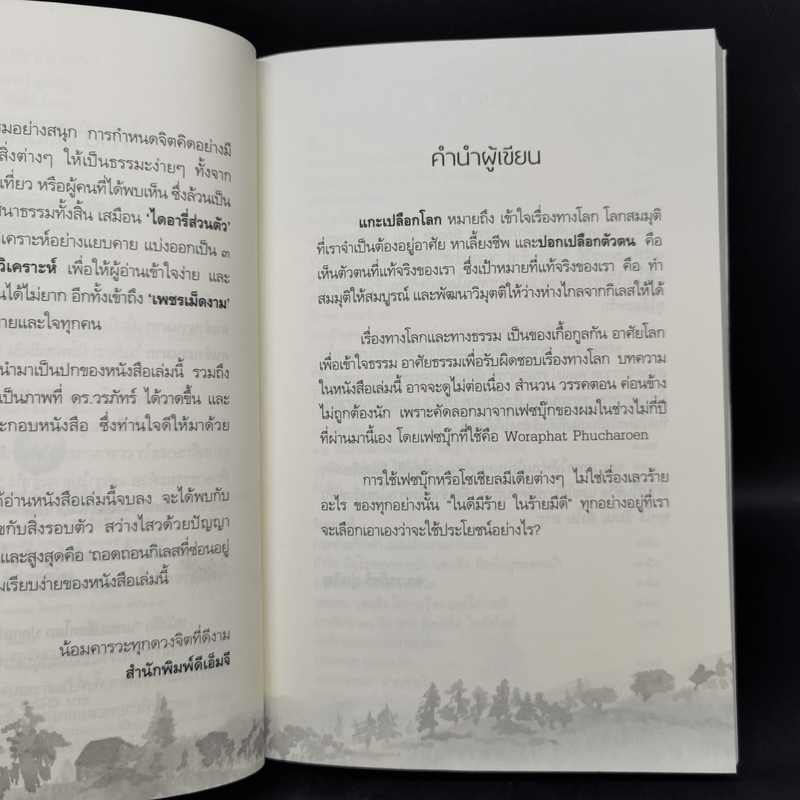 รมอย่างสนุก การกำหนดจิตคิดอย่างมี
สิ่งต่างๆ ให้เป็นธรรมะง่ายๆ ทั้งจาก
เที่ยว หรือผู้คนที่ได้พบเห็น ซึ่งล้วนเป็น
สนาธรรมทั้งสิ้น เสมือน ‘ไดอารี่ส่วนตัว’
เคราะห์อย่างแยบคาย แบ่งออกเป็น ๓
วิเคราะห์ เพื่อให้ผู้อ่านเข้าใจง่าย และ
นได้ไม่ยาก อีกทั้งเข้าถึง ‘เพชรเม็ดงาม’
ายและใจทุกคน
นำมาเป็นปกของหนังสือเล่มนี้ รวมถึง
เป็นภาพที่ ดร.วรภัทร์ ได้วาดขึ้น และ
ะกอบหนังสือ ซึ่งท่านใจดีให้มาด้วย
ด้อ่านหนังสือเล่มนี้จบลง จะได้พบกับ
ขกับสิ่งรอบตัว สว่างไสวด้วยปัญญา
และสูงสุดคือ ‘ถอดถอนกิเลสที่ซ่อนอยู่
มเรียบง่ายของหนังสือเล่มนี้
น้อมคารวะทุกดวงจิตที่ดีงาม
สำนักพิมพ์ดีเอ็มจี
คำนำผู้เขียน
แกะเปลือกโลก หมายถึง เข้าใจเรื่องทางโลก โลกสมมุติ
ที่เราจำเป็นต้องอยู่อาศัย หาเลี้ยงชีพ และปอกเปลือกตัวตน คือ
เห็นตัวตนที่แท้จริงของเรา ซึ่งเป้าหมายที่แท้จริงของเรา คือ ทำ
สมมุติให้สมบูรณ์ และพัฒนาวิมุตติให้ว่างห่างไกลจากกิเลสให้ได้
เรื่องทางโลกและทางธรรม เป็นของเกื้อกูลกัน อาศัยโลก
เพื่อเข้าใจธรรม อาศัยธรรมเพื่อรับผิดชอบเรื่องทางโลก บทความ
ในหนังสือเล่มนี้ อาจจะดูไม่ต่อเนื่อง สำนวน วรรคตอน ค่อนข้าง
ไม่ถูกต้องนัก เพราะคัดลอกมาจากเฟซบุ๊กของผมในช่วงไม่กี่ปี
ที่ผ่านมานี้เอง โดยเฟซบุ๊กที่ใช้คือ Woraphat Phucharoen
การใช้เฟซบุ๊กหรือโซเชียลมีเดียต่างๆ ไม่ใช่เรื่องเลวร้าย
อะไร ของทุกอย่างนั้น “ในดีมีร้าย ในร้ายมีดี” ทุกอย่างอยู่ที่เรา
จะเลือกเอาเองว่าจะใช้ประโยชน์อย่างไร?